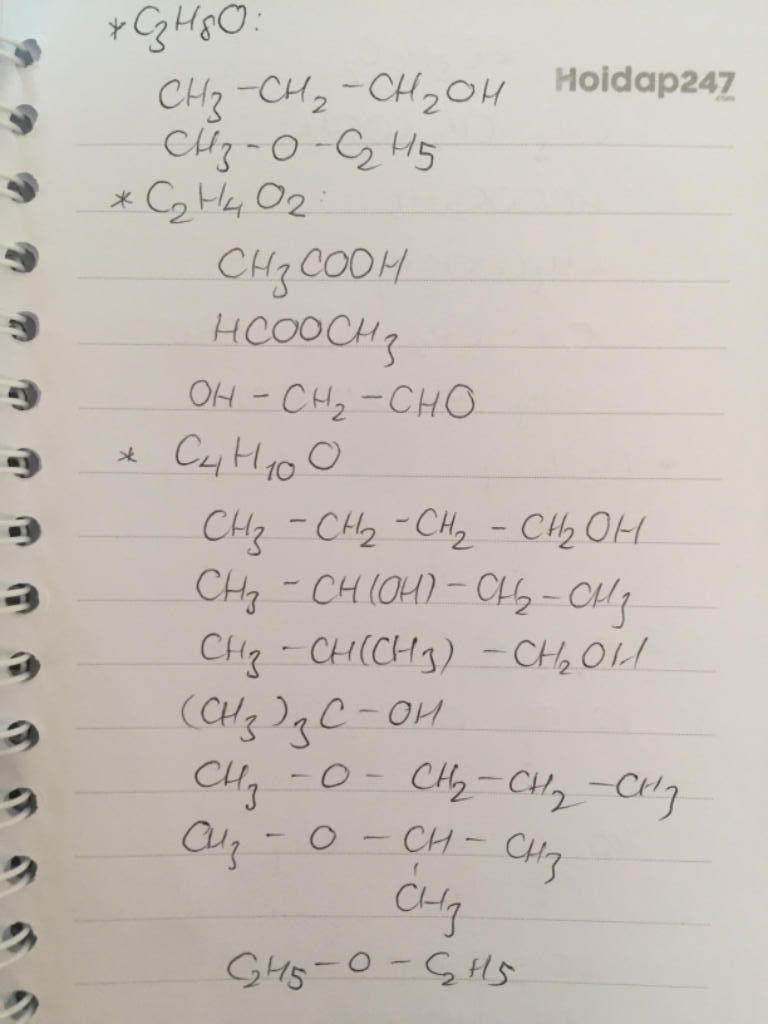 * C3H8O:
Hoidap247
.com
CH3 - CH2 - CH2OH
CH3 - O - C2H5
* C2H4O2:
CH3COOH
HCOOCH3
OH - CH2 - CHO
* C4H10O
CH3 - CH2 - CH2 - CH2OH
CH3 - CH(OH) - CH2 - CH3
CH3 - CH(CH3) - CH2OH
(CH3)3C - OH
CH3 - O - CH2 - CH2 - CH3
CH3 - O - CH - CH3
CH3
C2H5 - O - C2H5